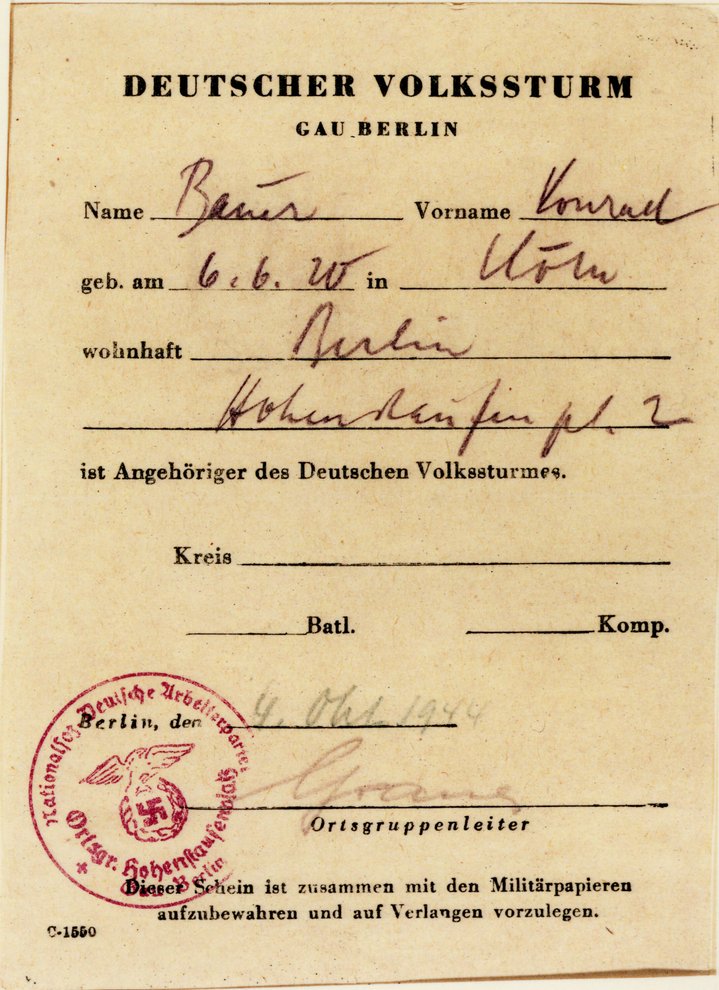 DEUTSCHER VOLKSSTURM
GAU BERLIN
Name Bauer Vorname Konrad
geb. am 6.6.20 in Köln
wohnhaft Berlin
Hohenstaufenpl. 2
ist Angehöriger des Deutschen Volkssturmes.
Kreis
Batl. Komp.
Berlin, den 4. Okt. 1944
Ortsgruppenleiter
Nationalsoz. Deutsche Arbeiterpartei
Ortsgr. Hohenstaufenplatz
Gau Berlin
Dieser Schein ist zusammen mit den Militärpapieren
aufzubewahren und auf Verlangen vorzulegen.
C-1550